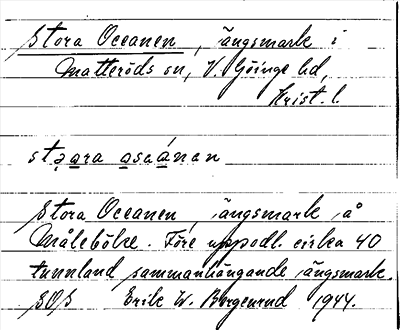 Stora Oceanen, ängsmark i
Matteröds sn, V. Göinge hd,
Krist. l.
stǫara osaánan
Stora Oceanen, ängsmark å
Målebölse. Före uppodl. cirka 40
tunnland sammanhängande ängsmark.
Erik W. Borgenrud 1944.